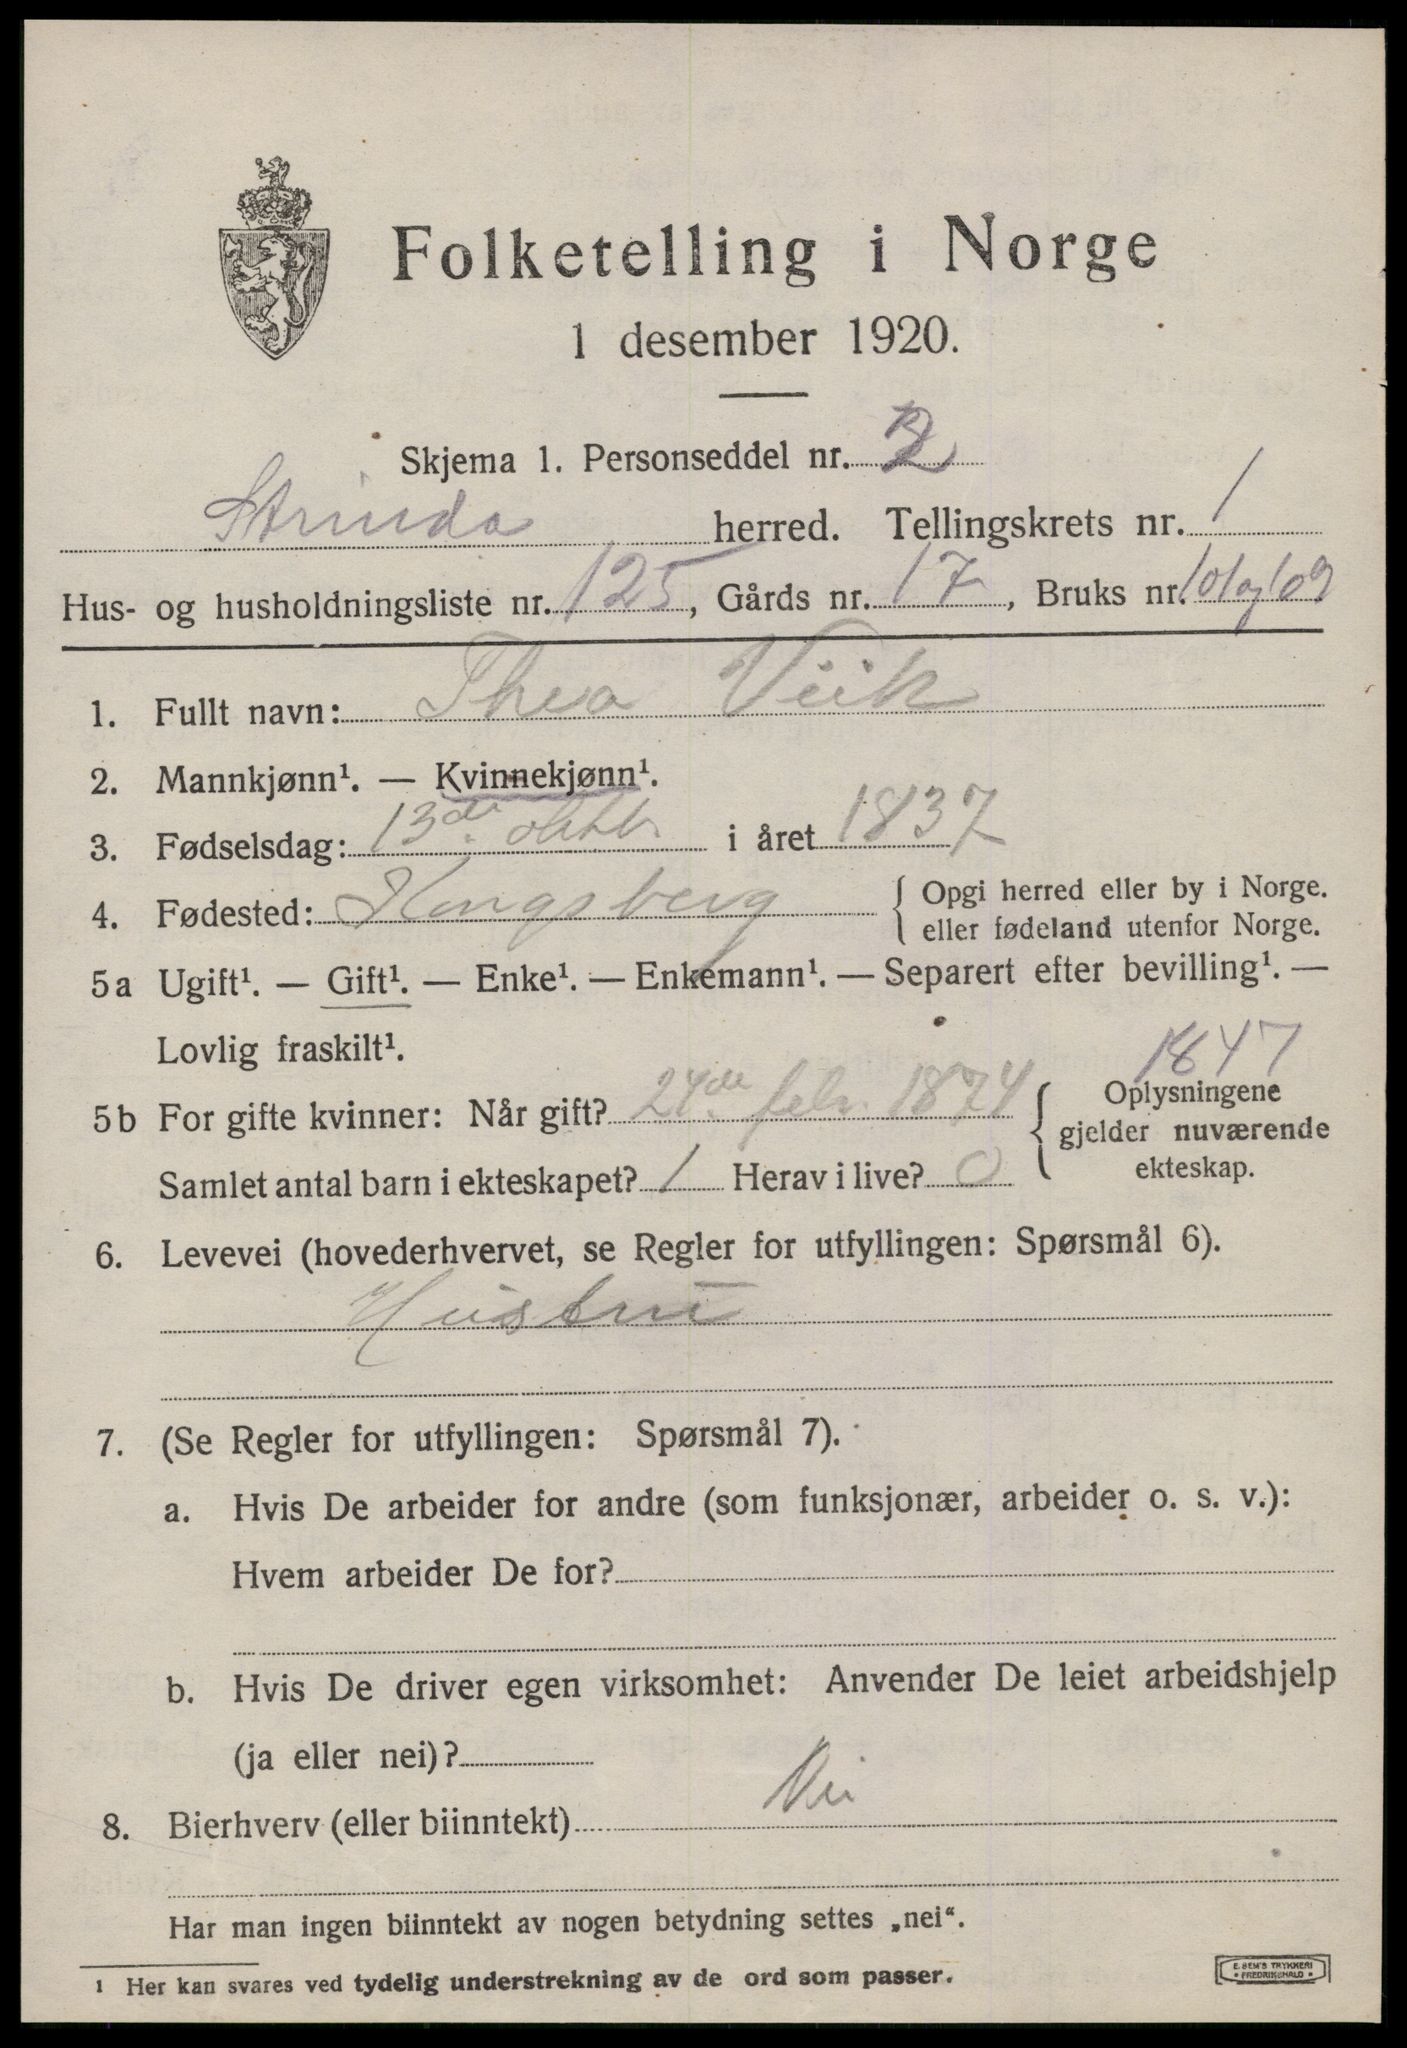 Folketelling i Norge
1 desember 1920.
Skjema 1. Personseddel nr. 2
Strinda herred. Tellingskrets nr. 1
Hus- og husholdningsliste nr. 125, Gårds nr. 17, Bruks nr. 101 og 109
1. Fullt navn: Thea Viik
2. Mannkjønn¹. — Kvinnekjønn¹.
3. Fødselsdag: 13de oktbr. i året 1837
4. Fødested: Kongsberg { Opgi herred eller by i Norge.
eller fødeland utenfor Norge.
5a Ugift¹. — Gift¹. — Enke¹. — Enkemann¹. — Separert efter bevilling¹. —
Lovlig fraskilt¹.
1847
5b For gifte kvinner: Når gift? 24de febr. 1874 { Oplysningene
gjelder nuværende
ekteskap.
Samlet antal barn i ekteskapet? 1 Herav i live? 0
6. Levevei (hovederhvervet, se Regler for utfyllingen: Spørsmål 6).
Hustru
7. (Se Regler for utfyllingen: Spørsmål 7).
a. Hvis De arbeider for andre (som funksjonær, arbeider o. s. v.):
Hvem arbeider De for?
b. Hvis De driver egen virksomhet: Anvender De leiet arbeidshjelp
(ja eller nei)?
8. Bierhverv (eller biinntekt) Nei
Har man ingen biinntekt av nogen betydning settes „nei“.
¹ Her kan svares ved tydelig understrekning av de ord som passer.
E. SEM'S TRYKKERI
• FREDRIKSHALD •